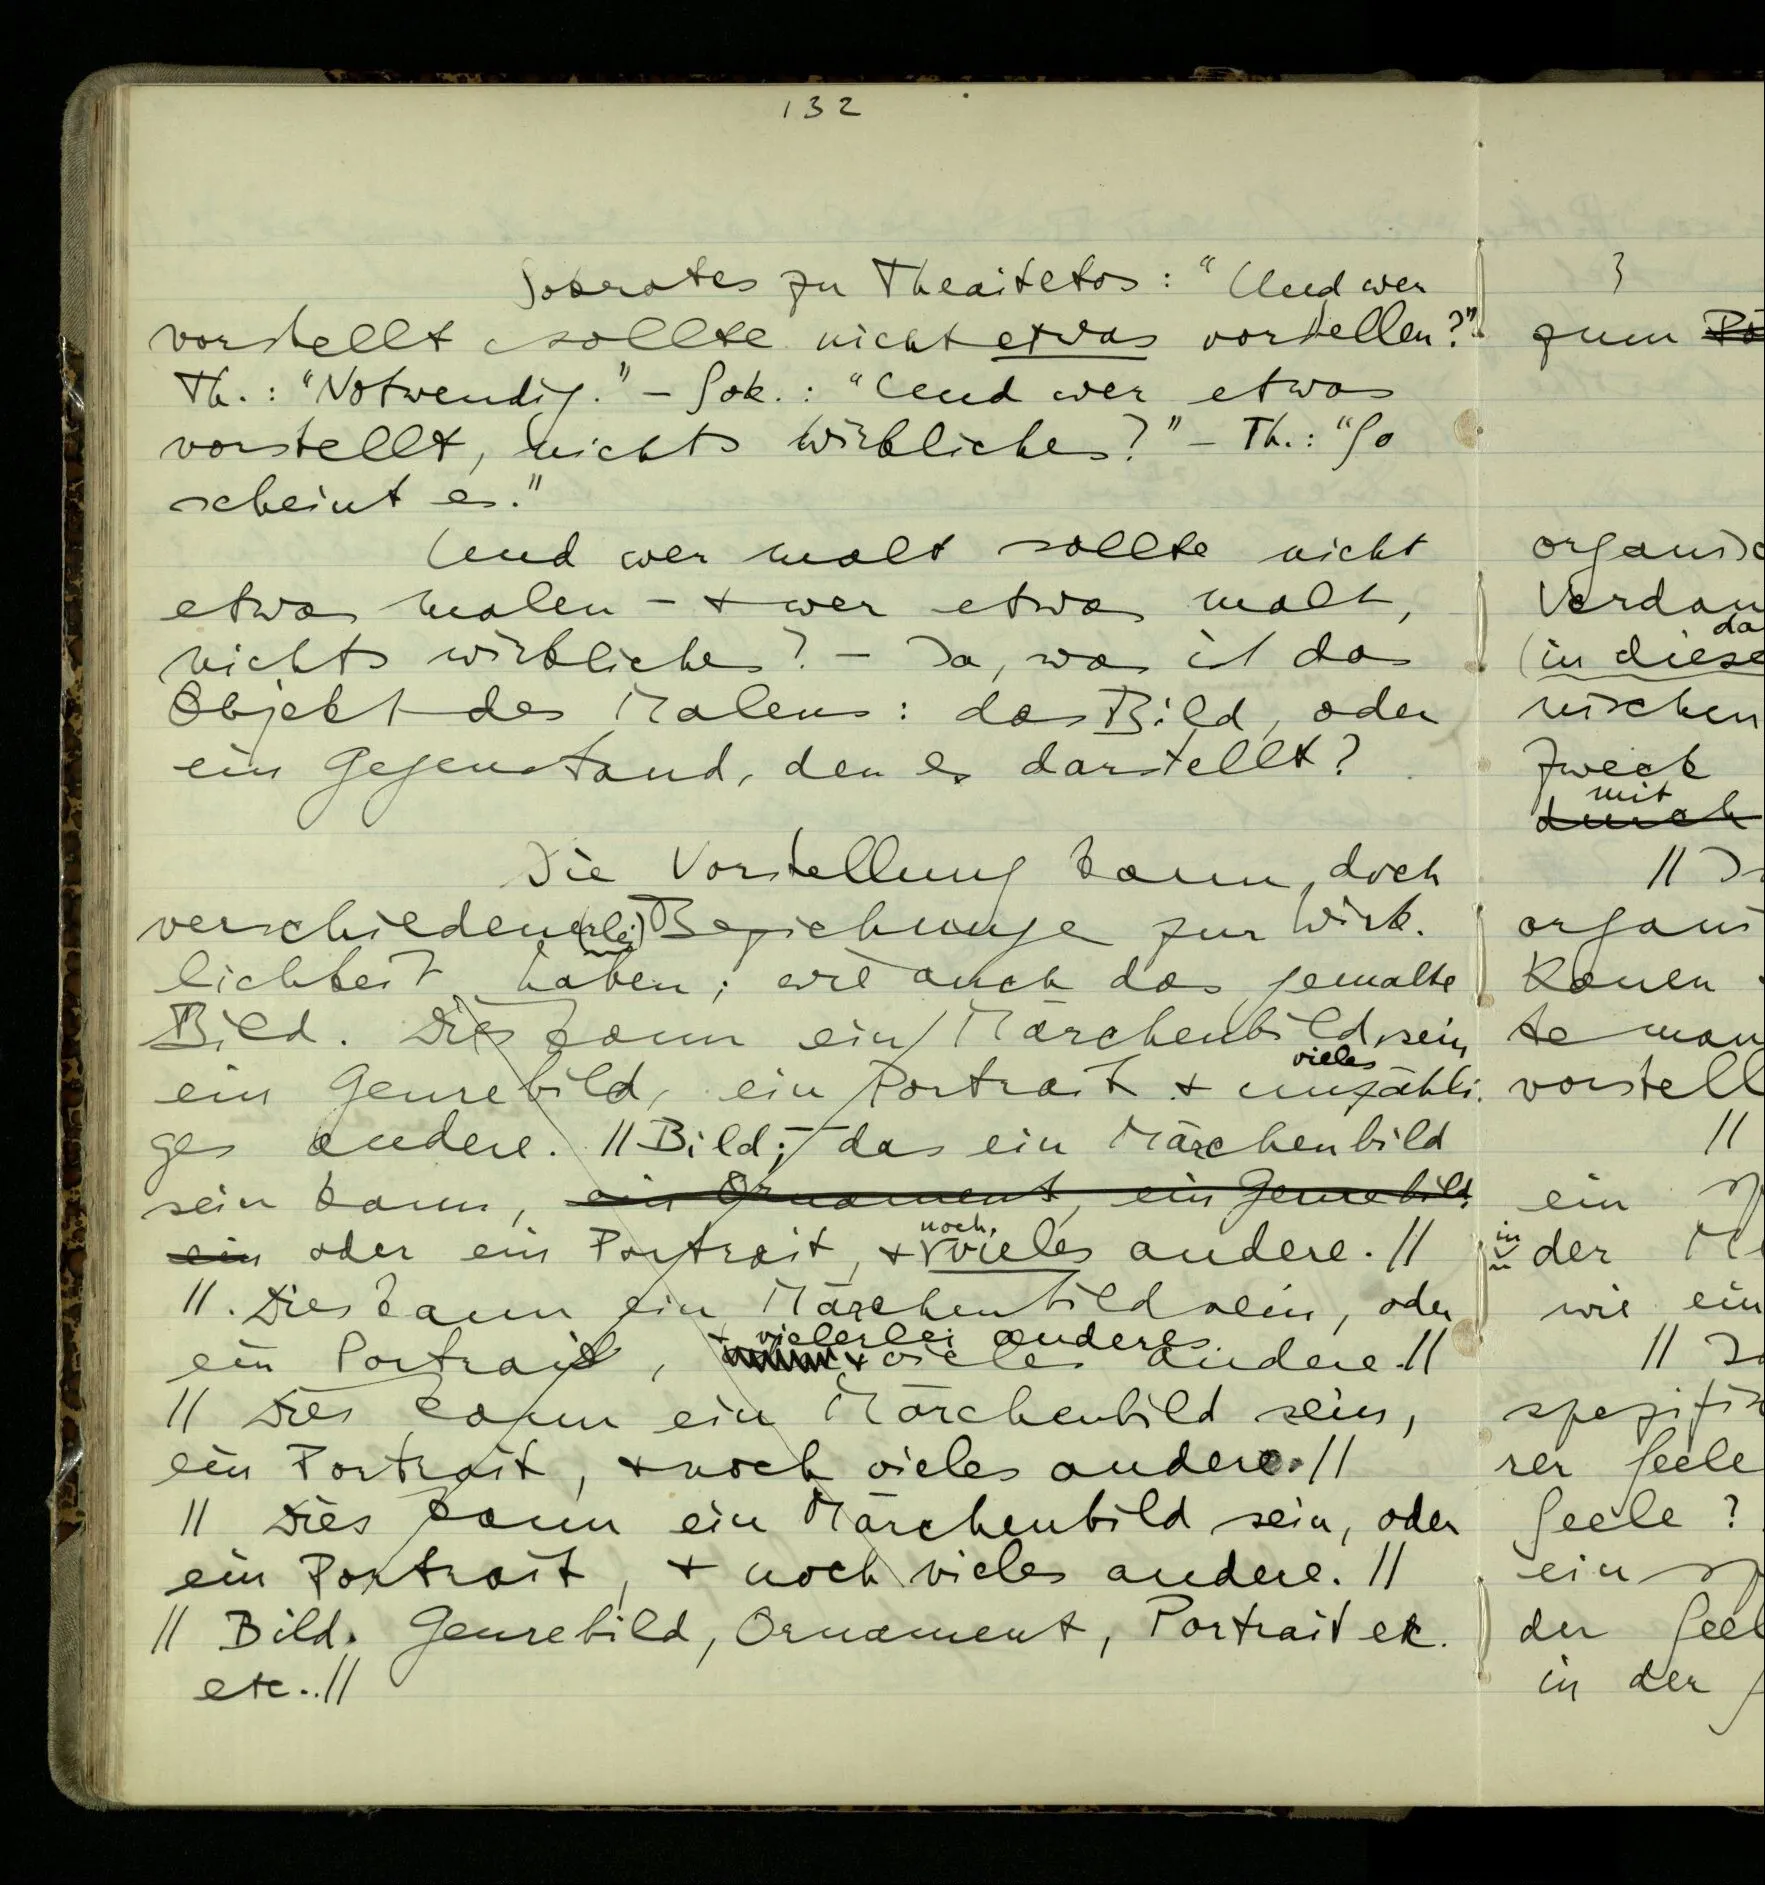 132
Sokrates zu Theaitetos: “Und wer
vorstellt sollte nicht etwas vorstellen?”
Th.: “Notwendig.” – Sok.: “Und wer etwas
vorstellt, nichts wirkliches?” – Th.: “So
scheint es.”
Und wer malt sollte nicht
etwas malen – + wer etwas malt,
nichts wirkliches? – Ja, was ist das
Objekt des Malens: das Bild, oder
ein Gegenstand, den es darstellt?
Die Vorstellung kann doch
verschiedene(rlei) Beziehunge zur Wirk.
lichkeit haben; wie auch das gemalte
Bild. Dies kann ein Märchenbild sein
vieles
ein Genrebild, ein Portrait + unzähli.
ges andere. || Bild; das ein Märchenbild
sein kann, ein Ornament, ein Genrebild
noch
ein oder ein Portrait, + vieles andere. ||
||. Dies kann ein Märchenbild sein, oder
+ vielerlei anderes
ein Portrait, + vieles andere. ||
|| Dies kann ein Märchenbild sein,
ein Portrait, + noch vieles andere. ||
|| Dies kann ein Märchenbild sein, oder
ein Portrait, + noch vieles andere. ||
|| Bild. Genrebild, Ornament, Portrait etc.
etc.. ||
zum
organisc
Verdau
da
(in diese
nischen
Zweck
mit
durch
||
organi
Kauen
te man
vorstell
||
ein
in
der
wie ein
||
spezifis
rer Seele
Seele?
ein
der Seel
in der